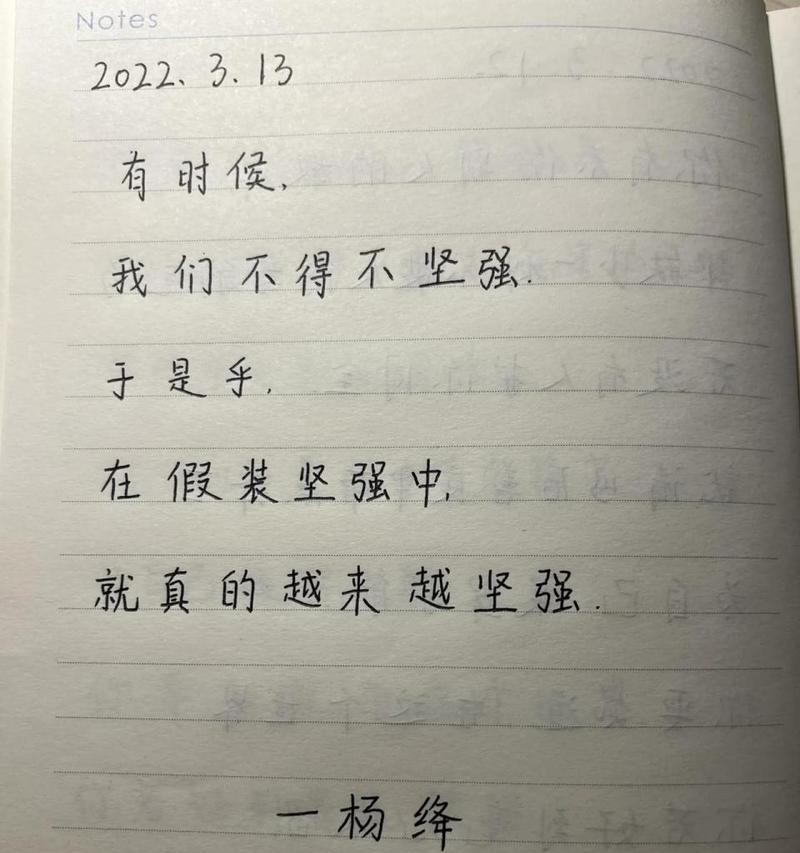 Notes
2022.3.13
有时候,
我们不得不坚强.
于是乎,
在假装坚强中,
就真的越来越坚强.
—杨绛